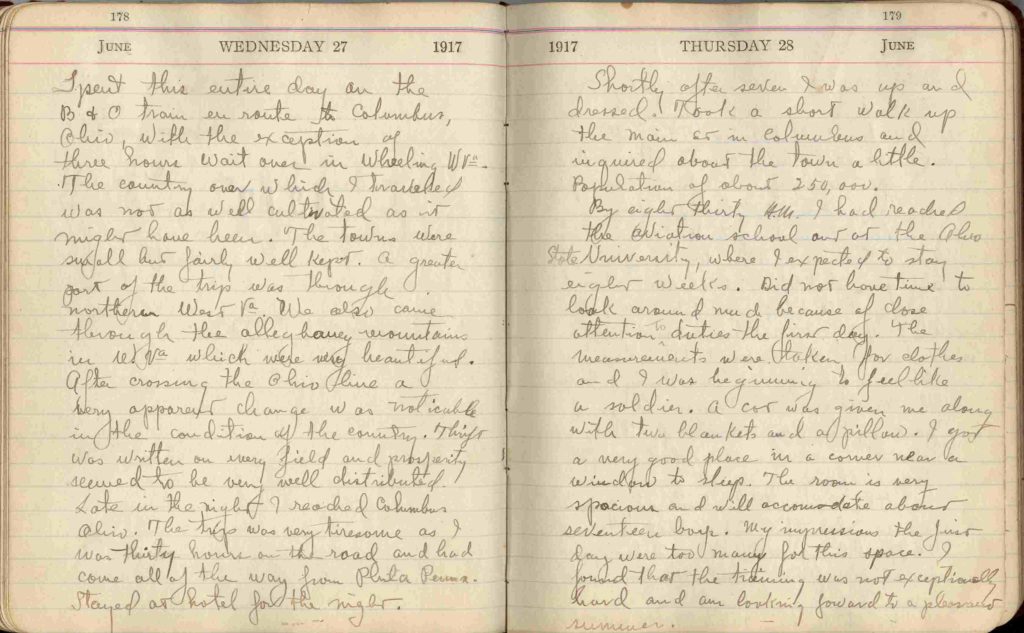 178
JUNE WEDNESDAY 27 1917
Spent this entire day on the
B & O train en route to Columbus,
Ohio, with the exception of
three hours wait over in Wheeling W Va.
The country over which I travelled
was not as well cultivated as it
might have been. The towns were
small but fairly well kept. A greater
part of the trip was through
northern West Va. We also came
through the allegheney mountains
in W Va which were very beautiful.
After crossing the Ohio line a
very apparent change was noticable
in the condition of the country. Thrift
was written on every field and prosperity
seemed to be very well distributed.
Late in the night I reached Columbus
Ohio. The trip was very tiresome as I
was thirty hours on the road and had
come all of the way from Phila Penna.
Stayed at hotel for the night.
179
1917 THURSDAY 28 JUNE
Shortly after seven I was up and
dressed. Took a short walk up
the main st in Columbus and
inquired about the town a little.
Population of about 250,000.
By eight thirty A.M. I had reached
the aviation school out at the Ohio
State University, where I expected to stay
eight weeks. Did not have time to
look around much because of close
attention to duties the first day. The
measurements were taken for clothes
and I was beginning to feel like
a soldier. A cot was given me along
with two blankets and a pillow. I got
a very good place in a corner near a
window to sleep. The room is very
spacious and will accomodate about
seventeen boys. My impressions the first
day were too many for this space. I
found that the training was not exceptionally
hard and am looking forward to a pleasant
summer.